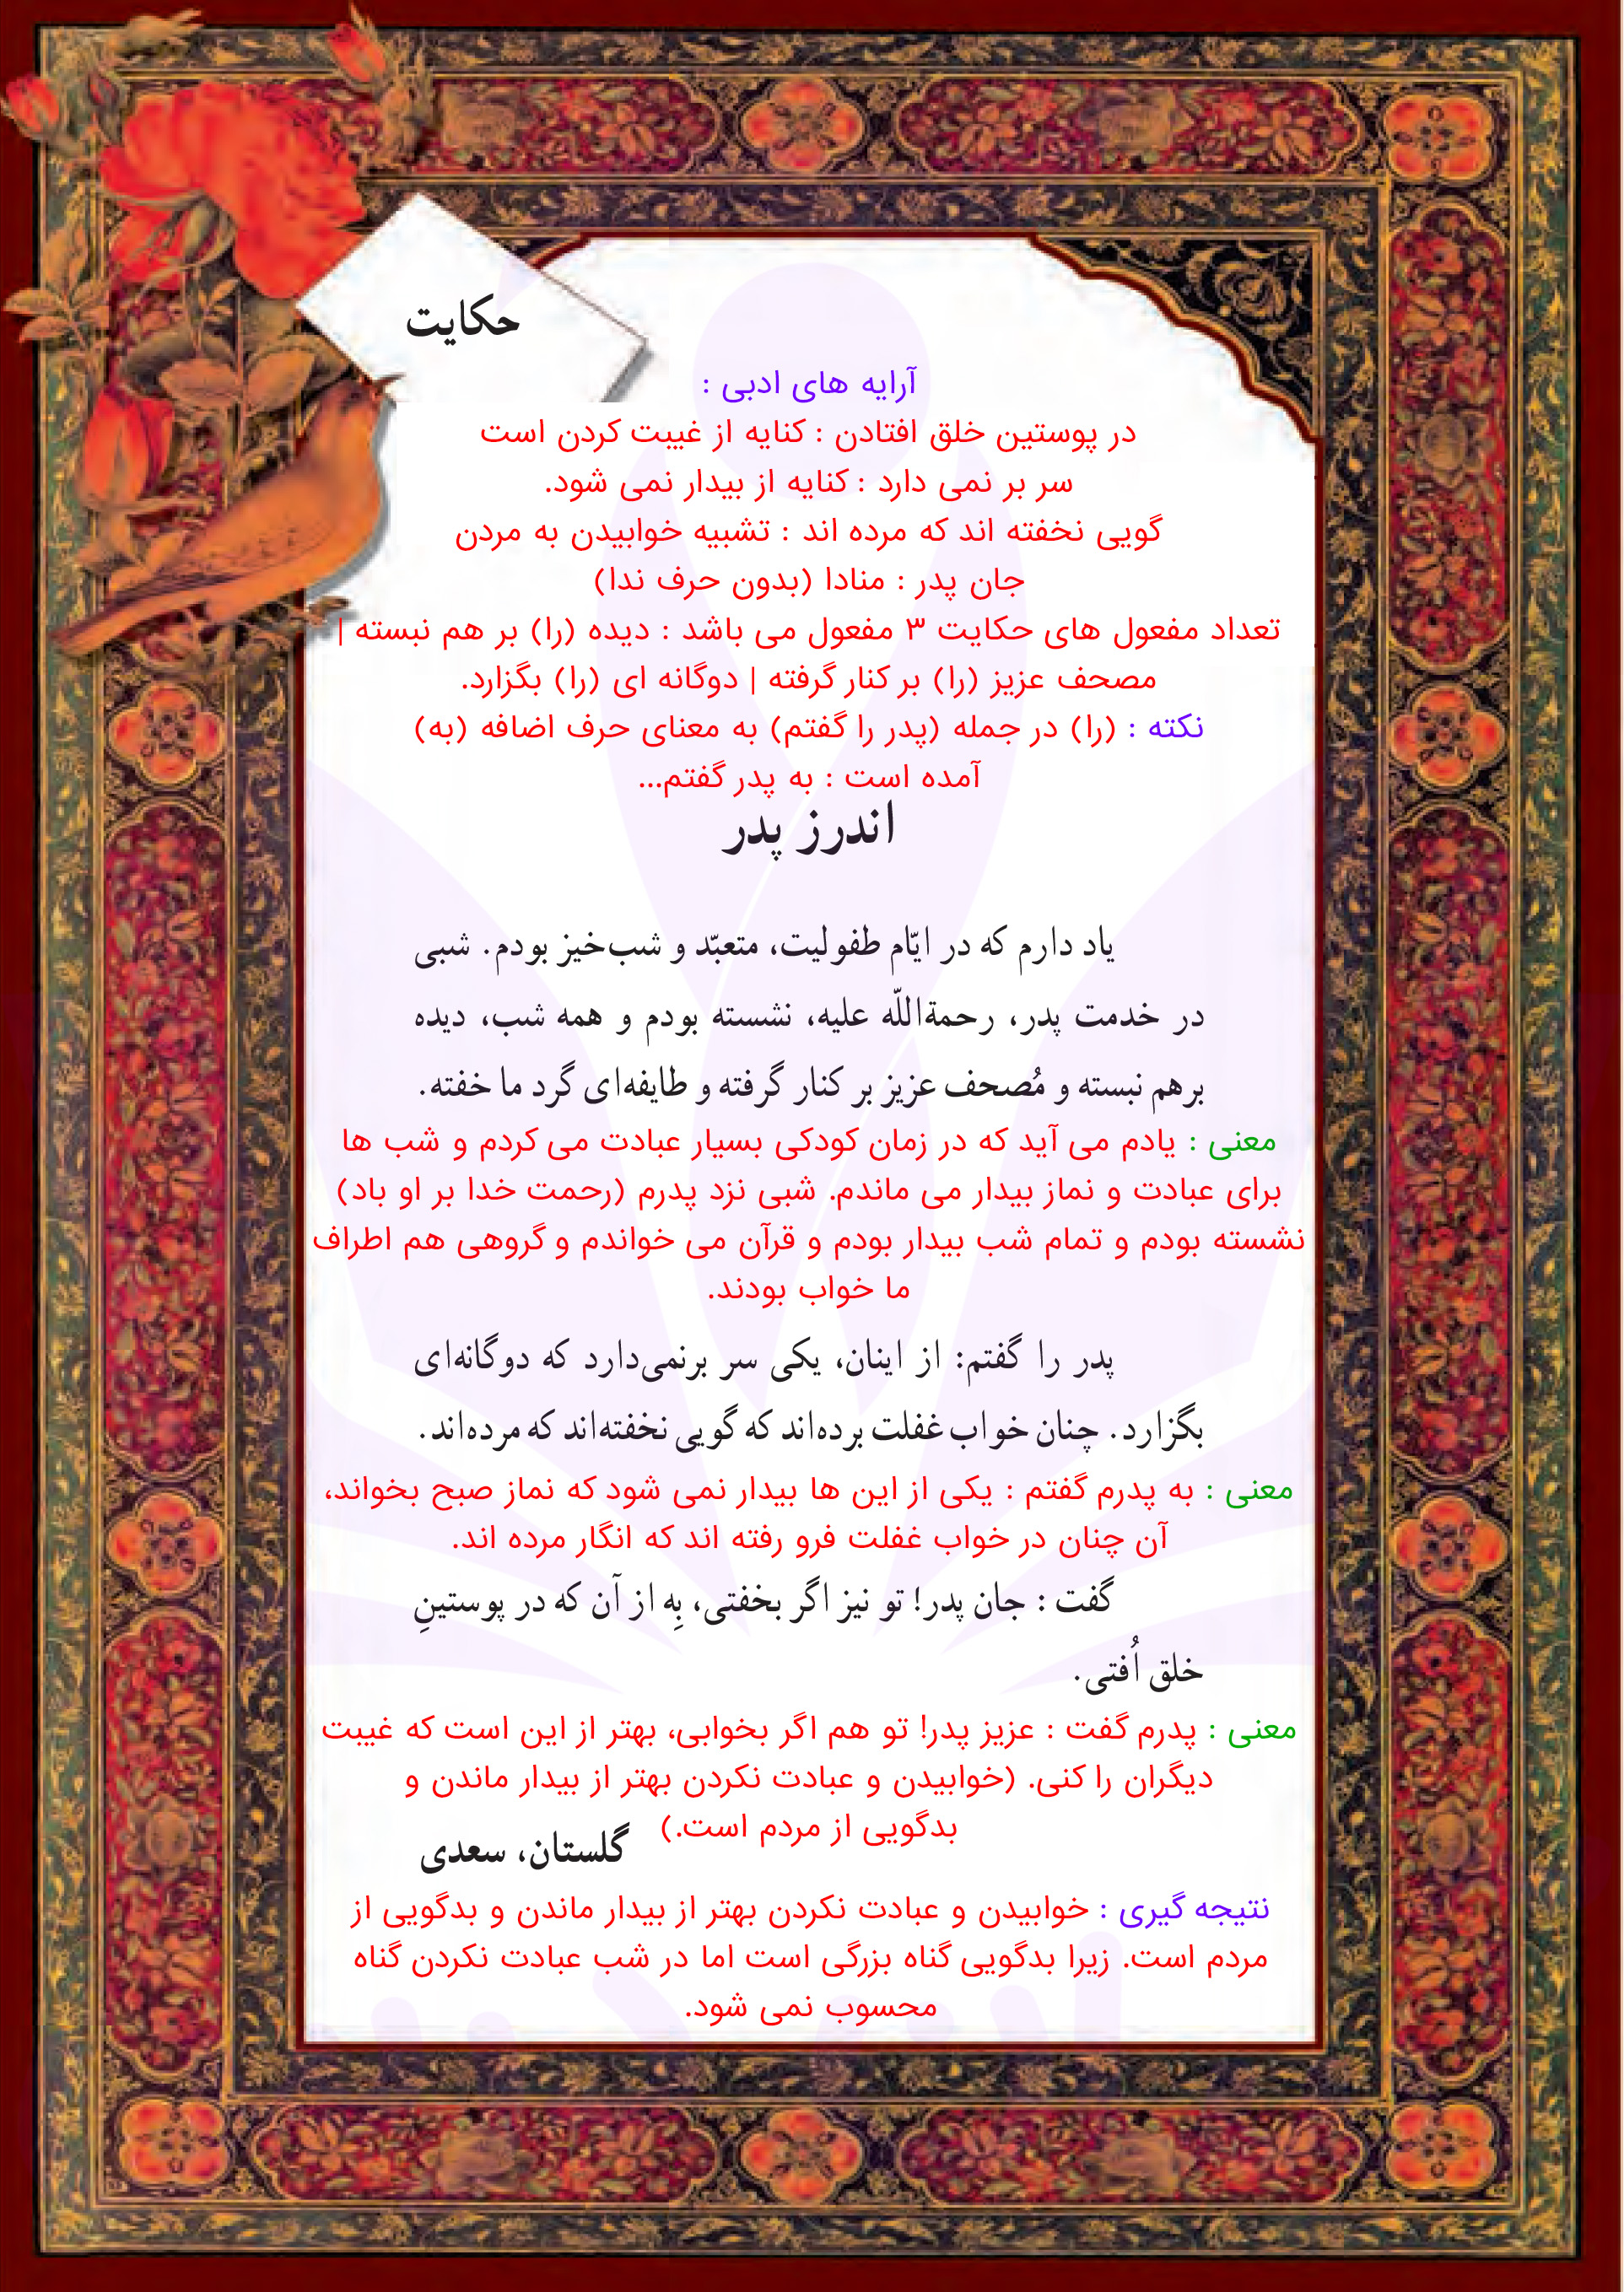 حکایت
آرایه های ادبی :
در پوستین خلق افتادن : کنایه از غیبت کردن است
سر بر نمی دارد : کنایه از بیدار نمی شود.
گویی نخفته اند که مرده اند : تشبیه خوابیدن به مردن
جان پدر : منادا (بدون حرف ندا)
تعداد مفعول های حکایت ۳ مفعول می باشد : دیده (را) بر هم نبسته |
مصحف عزیز (را) بر کنار گرفته | دوگانه ای (را) بگزارد.
نکته : (را) در جمله (پدر را گفتم) به معنای حرف اضافه (به)
آمده است : به پدر گفتم...
اندرز پدر
یاد دارم که در ایّام طفولیت، متعبّد و شب‌خیز بودم. شبی
در خدمت پدر، رحمةاللّه علیه، نشسته بودم و همه شب، دیده
برهم نبسته و مُصحف عزیز بر کنار گرفته و طایفه‌ای گرد ما خفته.
معنی : یادم می آید که در زمان کودکی بسیار عبادت می کردم و شب ها
برای عبادت و نماز بیدار می ماندم. شبی نزد پدرم (رحمت خدا بر او باد)
نشسته بودم و تمام شب بیدار بودم و قرآن می خواندم و گروهی هم اطراف
ما خواب بودند.
پدر را گفتم: از اینان، یکی سر برنمی‌دارد که دوگانه‌ای
بگزارد. چنان خواب غفلت برده‌اند که گویی نخفته‌اند که مرده‌اند.
معنی : به پدرم گفتم : یکی از این ها بیدار نمی شود که نماز صبح بخواند،
آن چنان در خواب غفلت فرو رفته اند که انگار مرده اند.
گفت : جان پدر! تو نیز اگر بخفتی، بِه از آن که در پوستینِ
خلق اُفتی.
معنی : پدرم گفت : عزیز پدر! تو هم اگر بخوابی، بهتر از این است که غیبت
دیگران را کنی. (خوابیدن و عبادت نکردن بهتر از بیدار ماندن و
بدگویی از مردم است.)
گلستان، سعدی
نتیجه گیری : خوابیدن و عبادت نکردن بهتر از بیدار ماندن و بدگویی از
مردم است. زیرا بدگویی گناه بزرگی است اما در شب عبادت نکردن گناه
محسوب نمی شود.